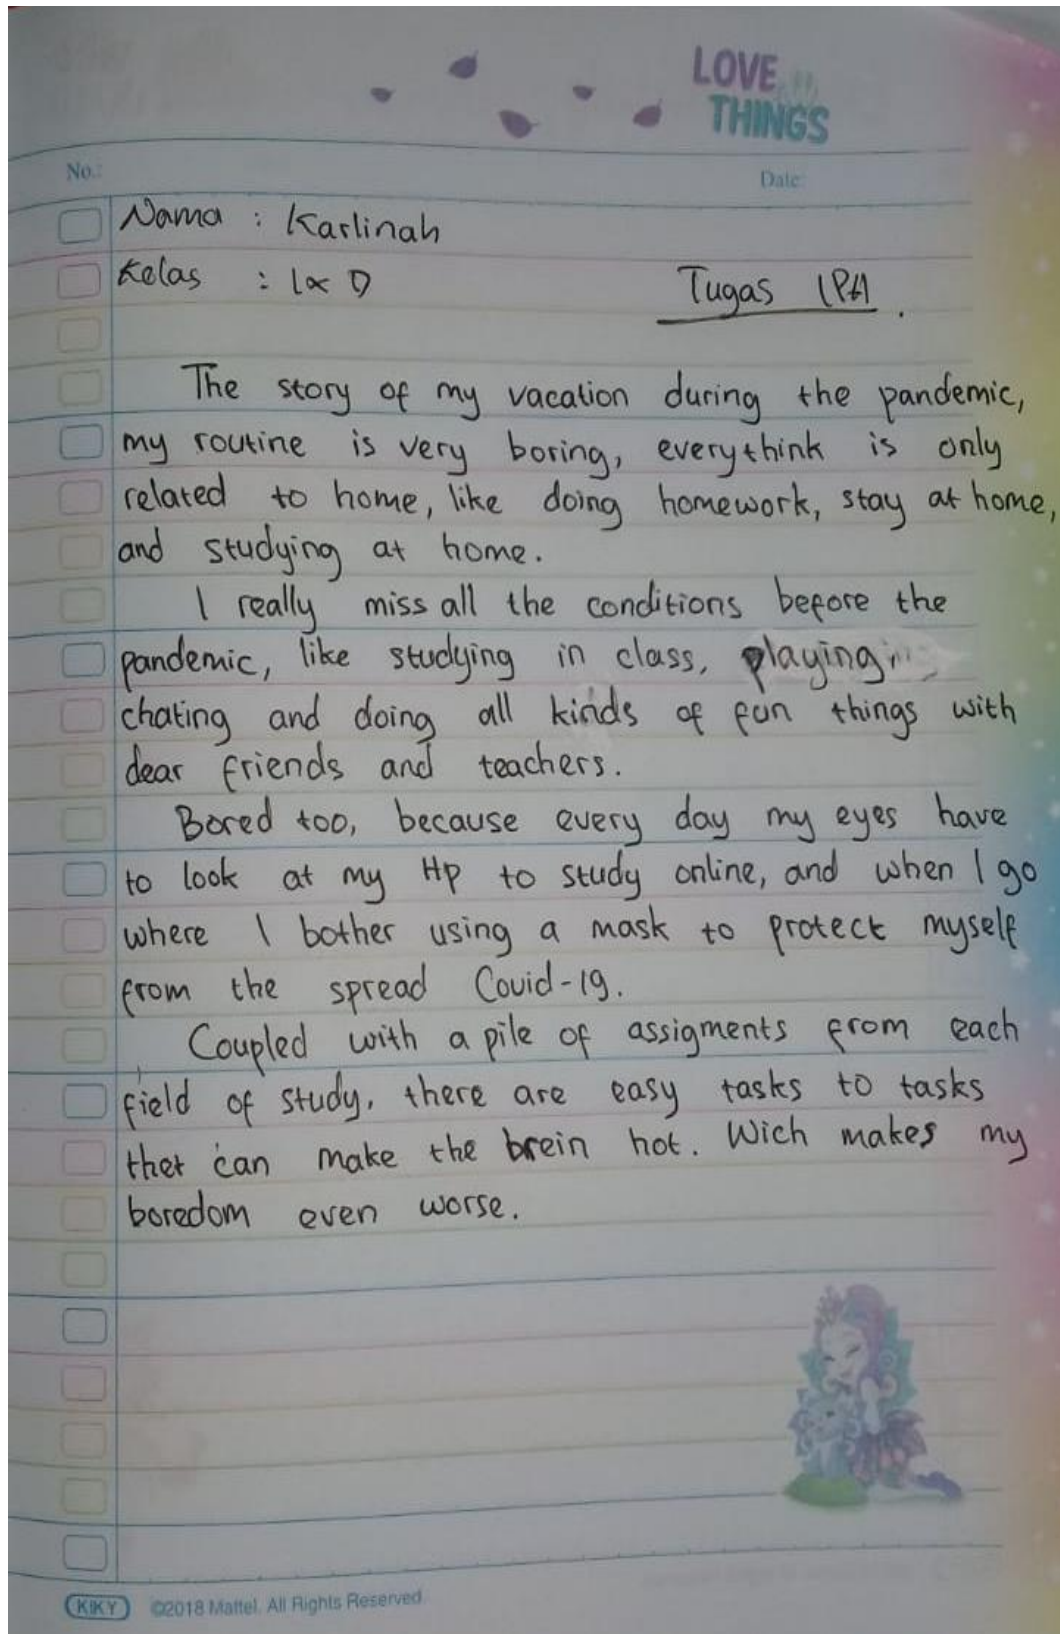 LOVE
THINGS
No.:
Date:
Nama : Karlinah
Kelas : IX D
Tugas IPA.
The story of my vacation during the pandemic,
my routine is very boring, everythink is only
related to home, like doing homework, stay at home,
and studying at home.
I really miss all the conditions before the
pandemic, like studying in class, playing,
chating and doing all kinds of fun things with
dear friends and teachers.
Bored too, because every day my eyes have
to look at my Hp to study online, and when I go
where I bother using a mask to protect myself
from the spread Covid-19.
Coupled with a pile of assigments from each
field of study, there are easy tasks to tasks
thet can make the brein hot. Wich makes my
boredom even worse.
KIKY ©2018 Mattel. All Rights Reserved